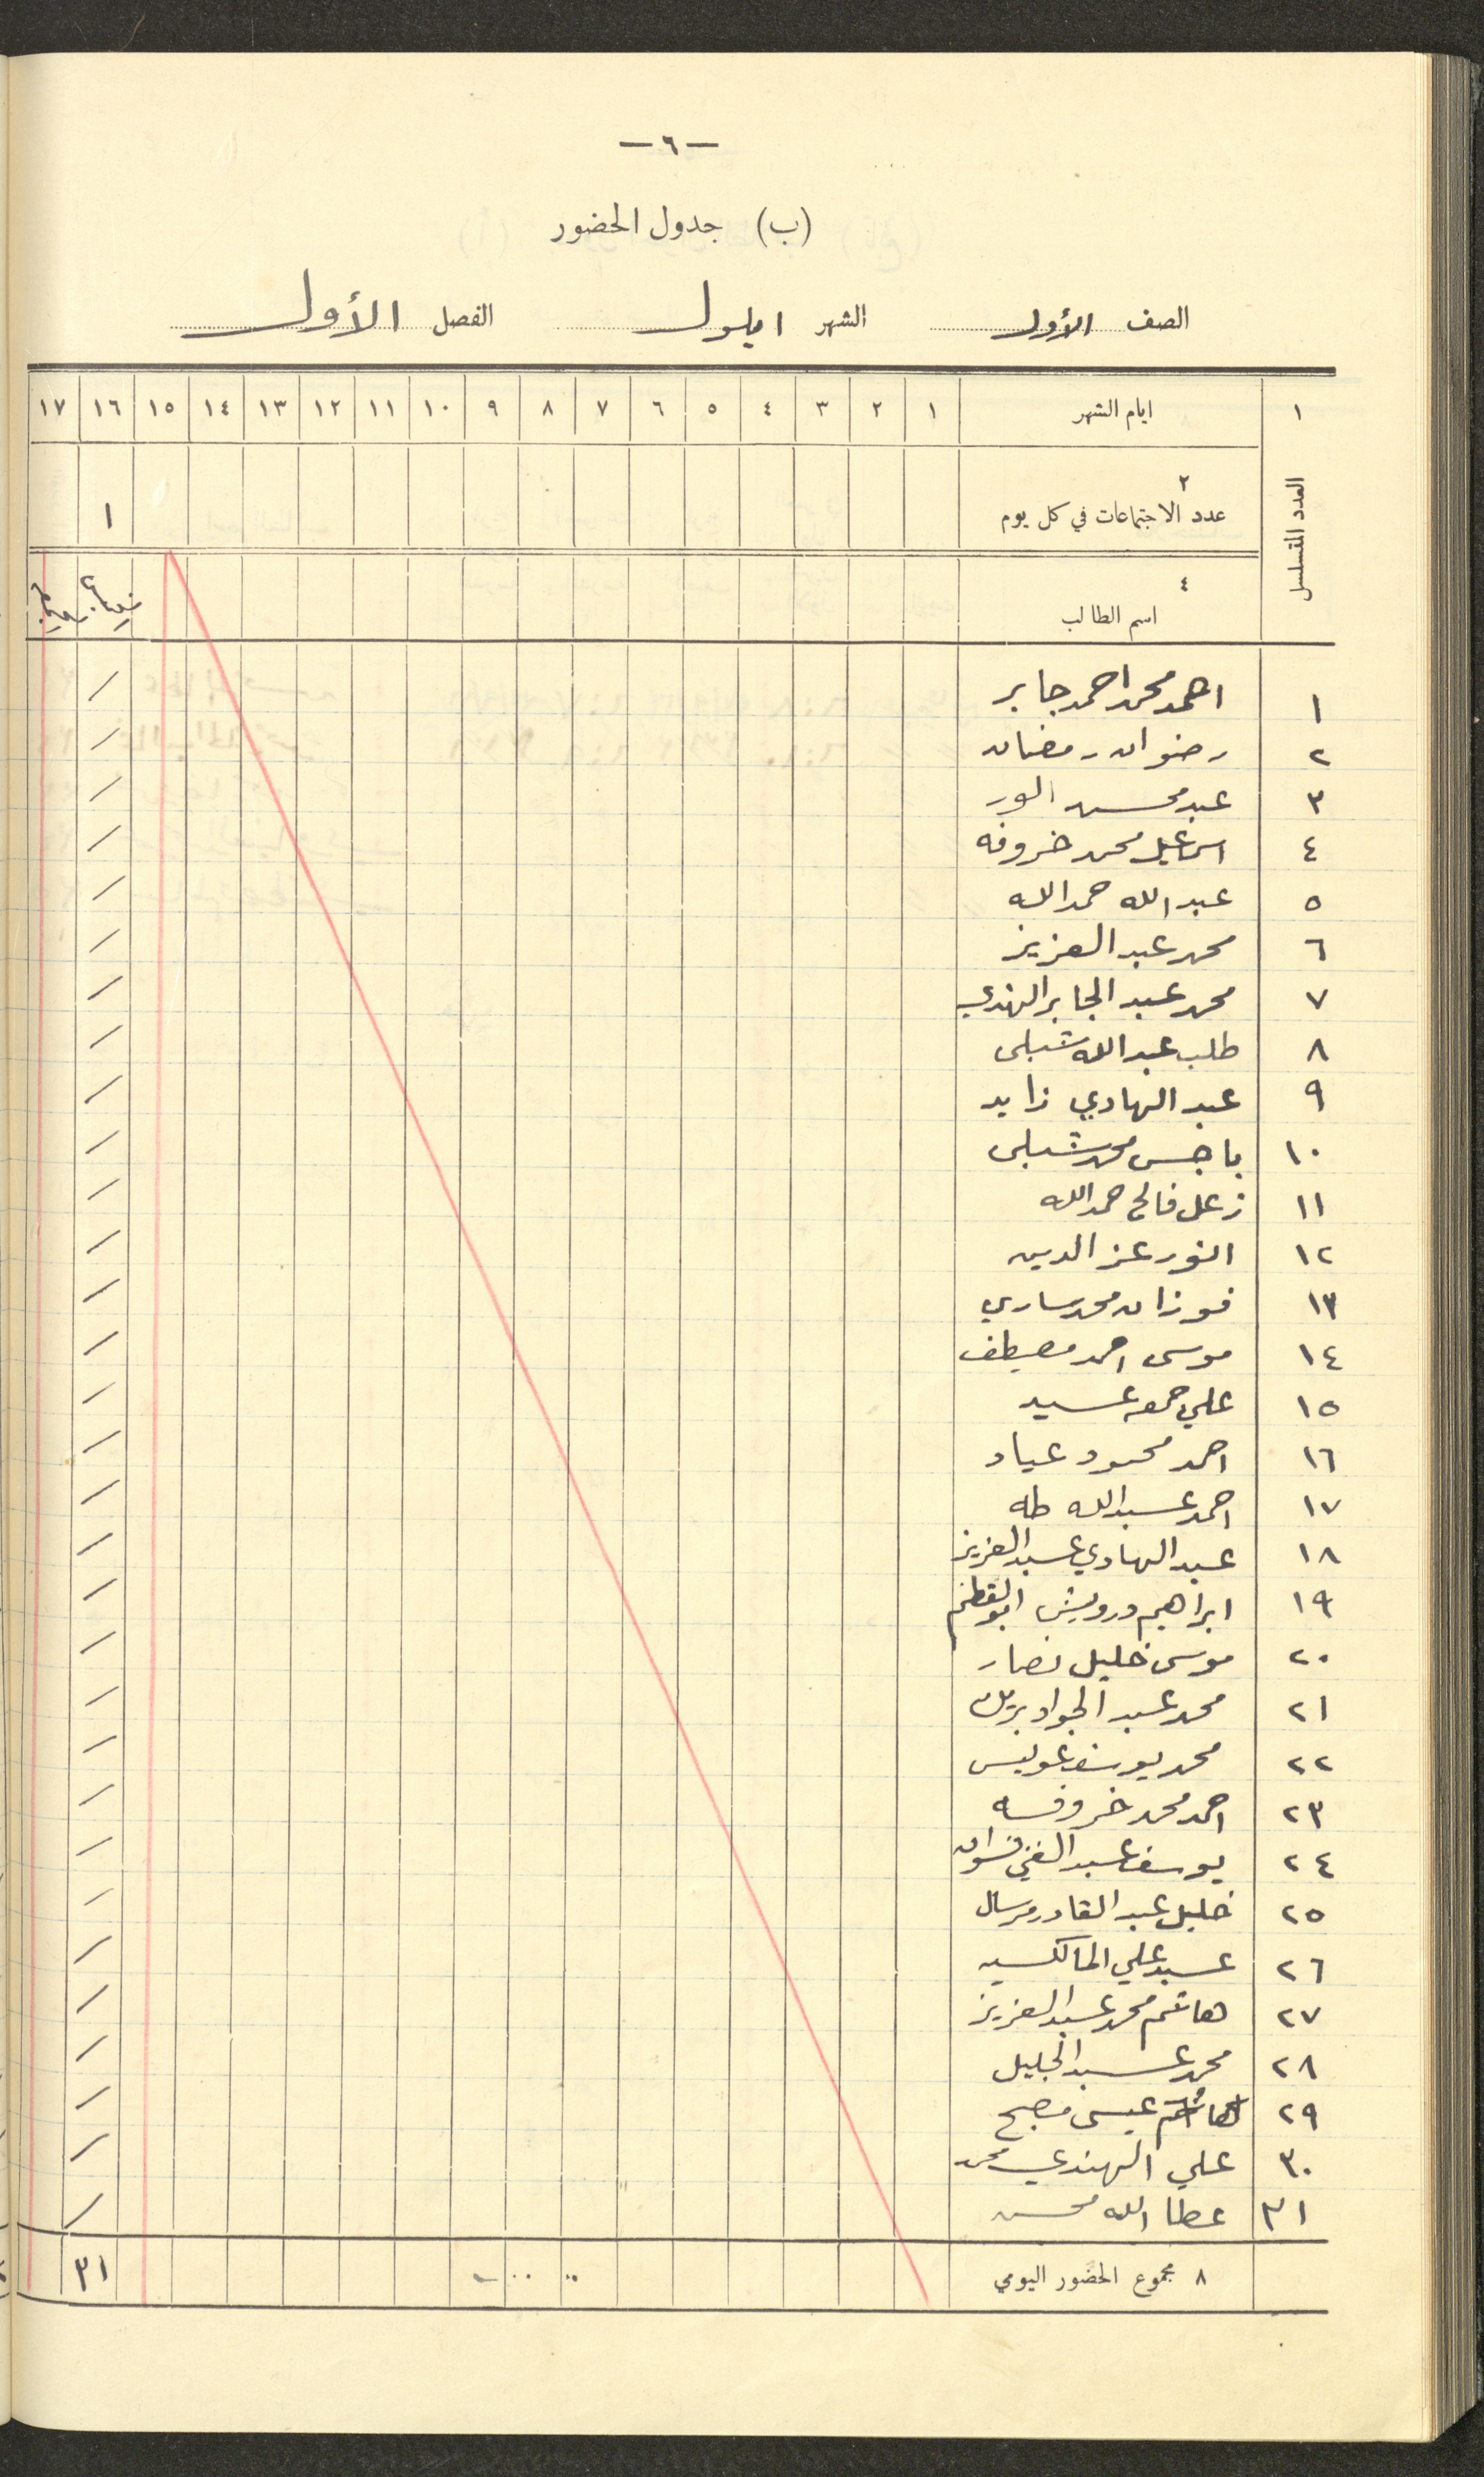 — ٦ —
(ب) جدول الحضور
الصف الأول الشهر ايلول الفصل الأول
١ ايام الشهر ١ ٢ ٣ ٤ ٥ ٦ ٧ ٨ ٩ ١٠ ١١ ١٢ ١٣ ١٤ ١٥ ١٦ ١٧
العدد المتسلسل
٢
عدد الاجتماعات في كل يوم ١
٤
اسم الطالب
١ احمد محمد احمد جابر /
٢ رضوان رمضان /
٣ عبد محسن /
٤ اسماعيل محمد خروفه /
٥ عبد الله حمد الله /
٦ محمد عبد العزيز /
٧ محمد عبد الجابر الهندي /
٨ طلب عبد الله شبلي /
٩ عبد الهادي زايد /
١٠ باجس محمد شبلي /
١١ زعل فالح حمد الله /
١٢ انور عز الدين /
١٣ فوزان محمد ساري /
١٤ موسى احمد مصيطف /
١٥ علي جمعه عسيد /
١٦ احمد محمود عياد /
١٧ احمد عبد الله طه /
١٨ عبد الهادي عبد العزيز /
١٩ ابراهيم درويش /
٢٠ موسى خليل نصار /
٢١ محمد عبد الجواد /
٢٢ محمد يوسف عويس /
٢٣ احمد محمد خروفه /
٢٤ يوسف عبد الغني نسوان /
٢٥ خليل عبد القادر مرسال /
٢٦ عبد علي /
٢٧ هاشم محمد عبد العزيز /
٢٨ محمد عبد الجليل /
٢٩ عيسى مصبح /
٣٠ علي الهندي محمد /
٣١ عطا الله محسن /
٨ مجموع الحضور اليومي ٣١